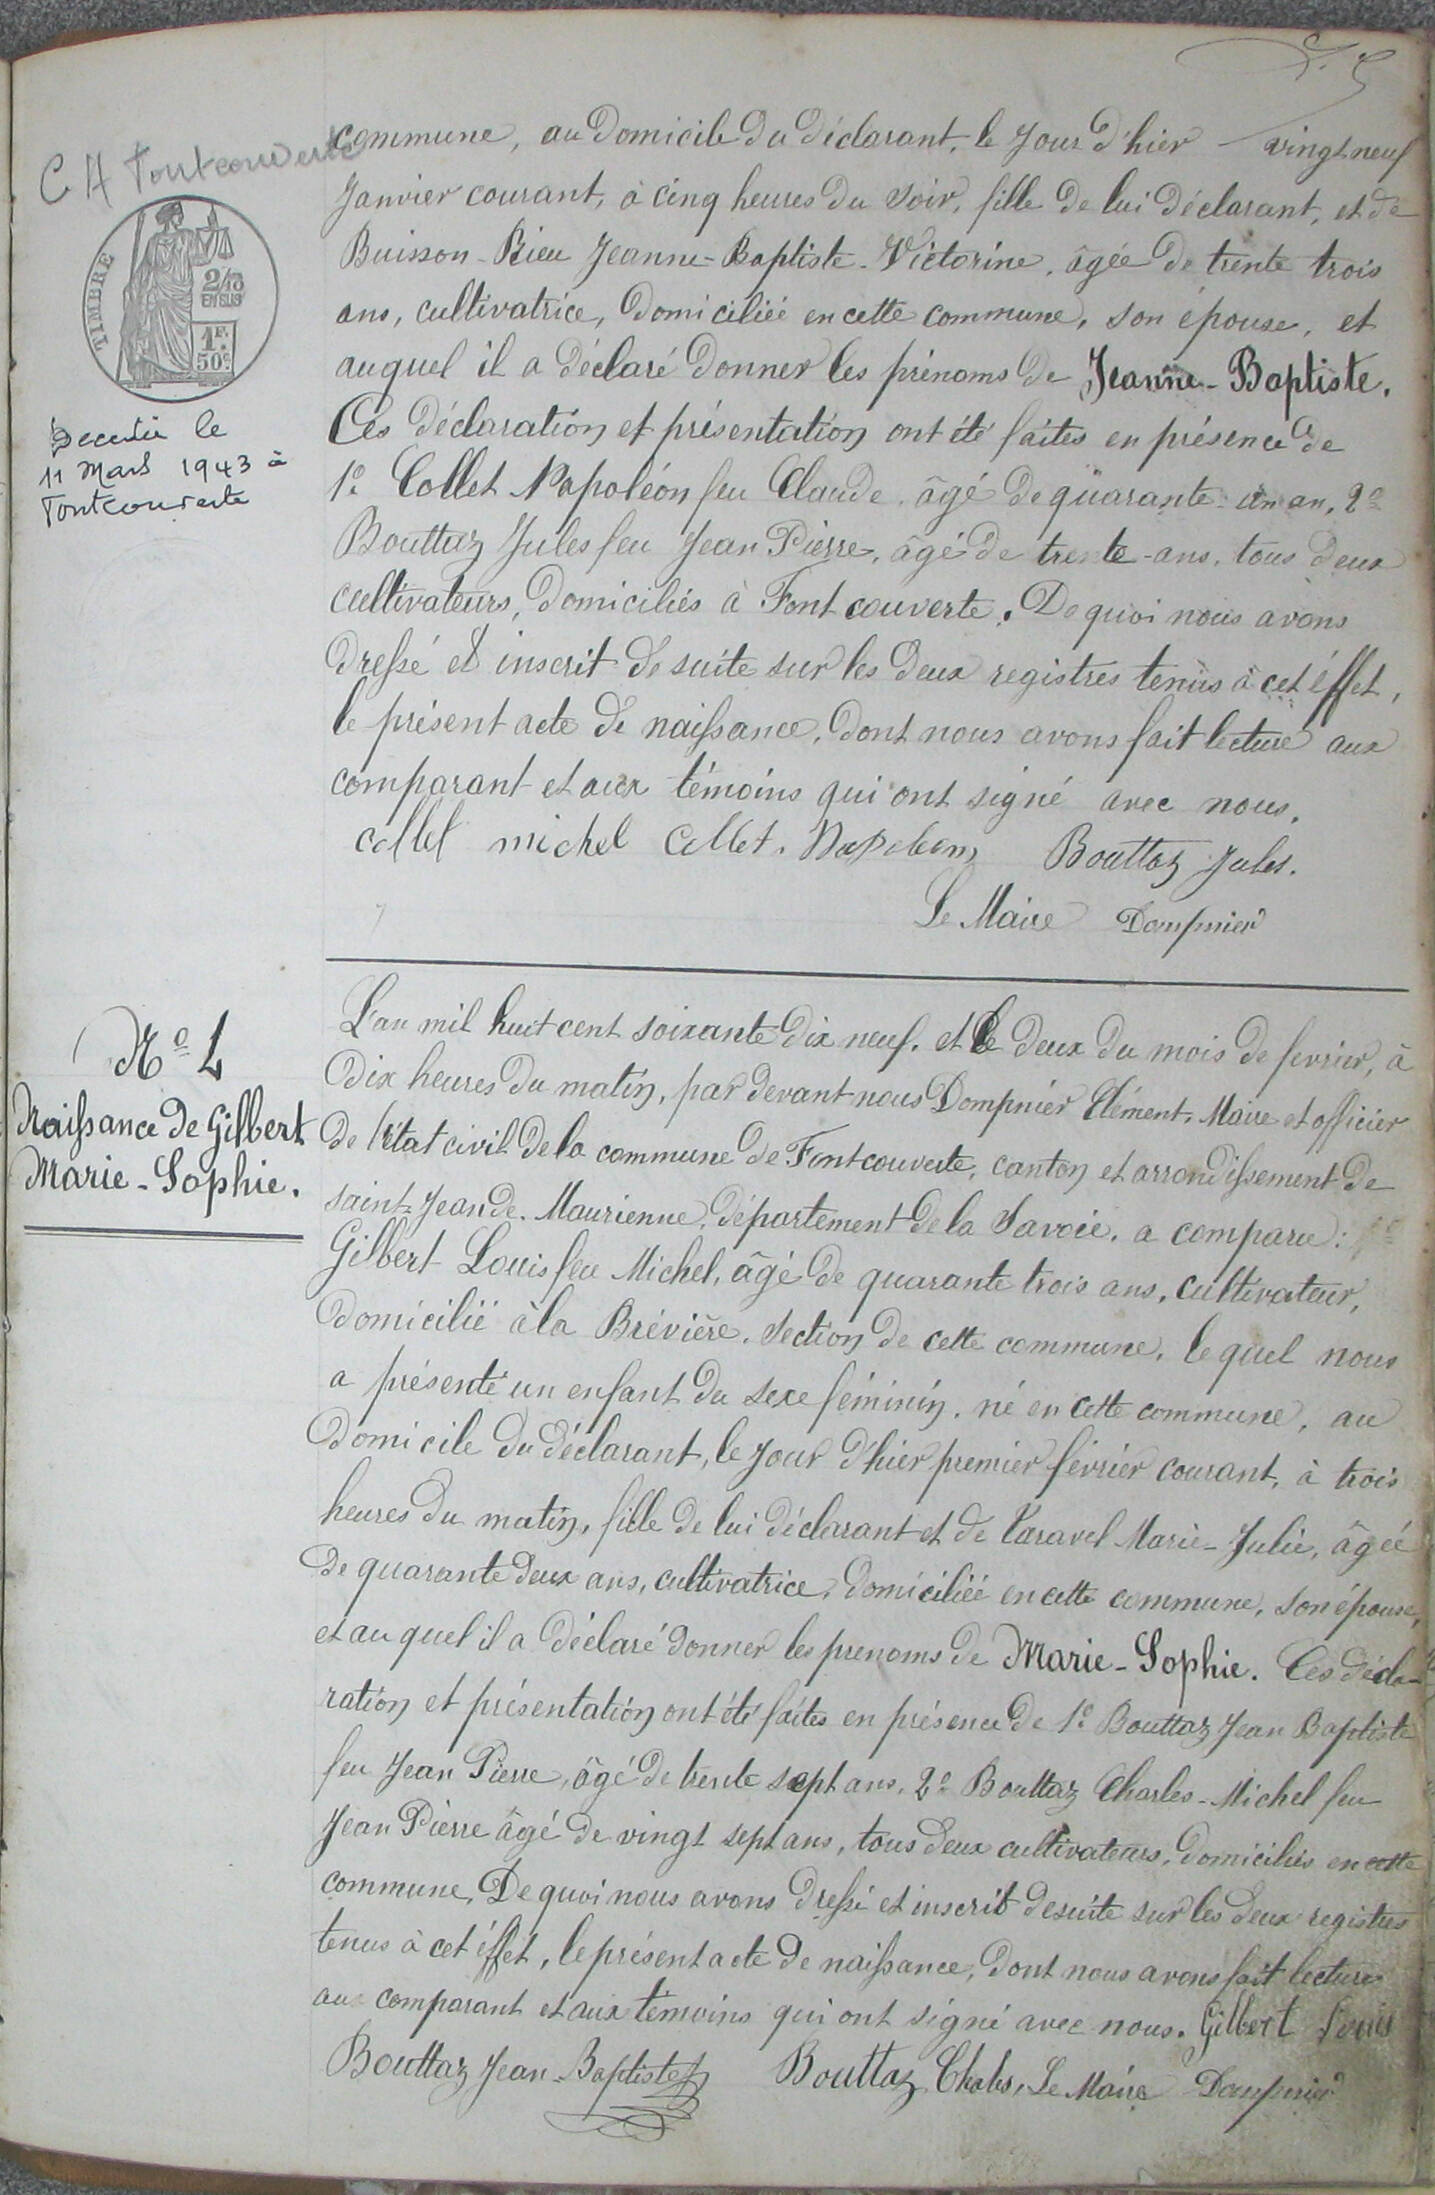 commune, au Domicile du déclarant, le jour d'hier vingt neuf
Janvier courant, à cinq heures du soir, fille de lui déclarant, et de
Buisson-Rieu Jeanne-Baptiste-Victorine, âgée de trente trois
ans, cultivatrice, domiciliée en cette commune, son épouse, et
auquel il a déclaré donner les prénoms de Jeanne-Baptiste.
Ces déclaration et présentation ont été faites en présence de
1º Collet Napoléon feu Claude, âgé de quarante-un an, 2º
Bouttaz Jules feu Jean Pierre, âgé de trente-ans, tous deux
cultivateurs, domiciliés à Fontcouverte. De quoi nous avons
dressé et inscrit de suite sur les deux registres tenus à cet éffet,
le présent acte de naissance, dont nous avons fait lecture aux
comparant et aux témoins qui ont signé avec nous.
collet michel Collet. Napoleon Bouttaz Jules.
Le Maire Dompnier
C A Fontcouverte
TIMBRE
2/10
EN SUS
1F.
50c.
Decedée le
11 Mars 1943 à
Fontcouverte
Nº 4
Naissance de Gilbert
Marie-Sophie.
L'an mil huit cent soixante dix neuf, et le deux du mois de fevrier, à
dix heures du matin, par devant nous Dompnier Clément, Maire et officier
de l'état civil de la commune de Fontcouverte, canton et arrondissement de
saint-Jean de Maurienne, département de la Savoie, a comparu:
Gilbert Louis feu Michel, âgé de quarante trois ans, cultivateur,
domicilié à la Brévière, section de cette commune, lequel nous
a présenté un enfant du sexe féminin, né en cette commune, au
domicile du déclarant, le jour d'hier premier février courant, à trois
heures du matin, fille de lui déclarant et de Taravel Marie-Julie, âgée
de quarante deux ans, cultivatrice, domiciliée en cette commune, son épouse,
et auquel il a déclaré donner les prenoms de Marie-Sophie. Ces décla-
ration et présentation ont été faites en présence de 1º Bouttaz Jean Baptiste
feu Jean Pierre, âgé de trente sept ans, 2º Bouttaz Charles-Michel feu
Jean Pierre âgé de vingt sept ans, tous deux cultivateurs, domiciliés en cette
commune, De quoi nous avons dressé et inscrit de suite sur les deux registres
tenus à cet éffet, le présent acte de naissance, dont nous avons fait lecture
au comparant et aux témoins qui ont signé avec nous. Gilbert Louis
Bouttaz Jean-Baptiste Bouttaz Chales, Le Maire Dompnier